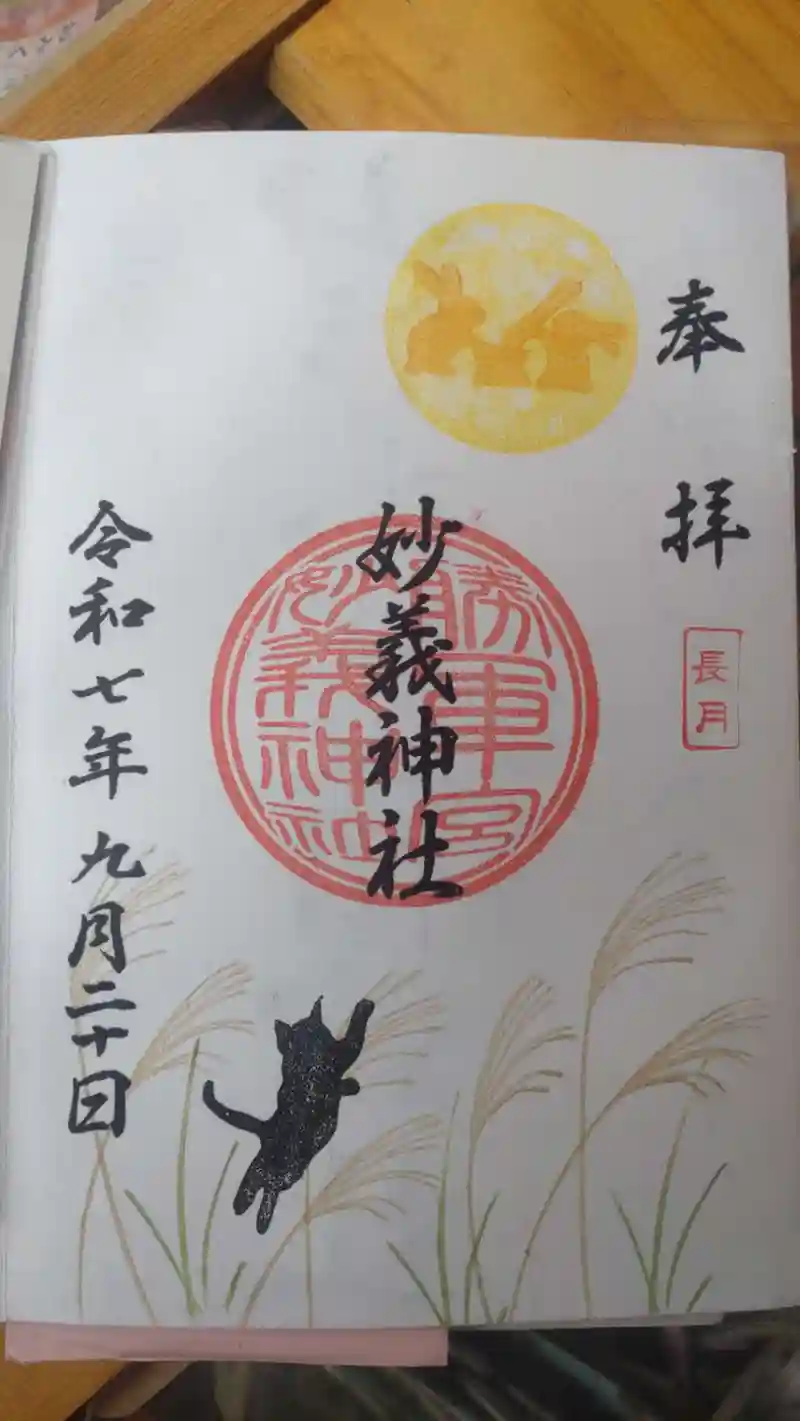 奉拝
長月
妙義神社
勝軍宮
妙義神社
令和七年九月二十日